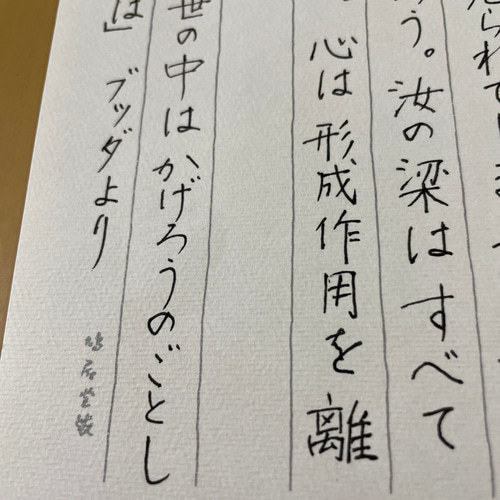 られて
う。汝の梁はすべて
心は形成作用を離
世の中はかげろうのごとし
は」ブッダより
鳩居堂製